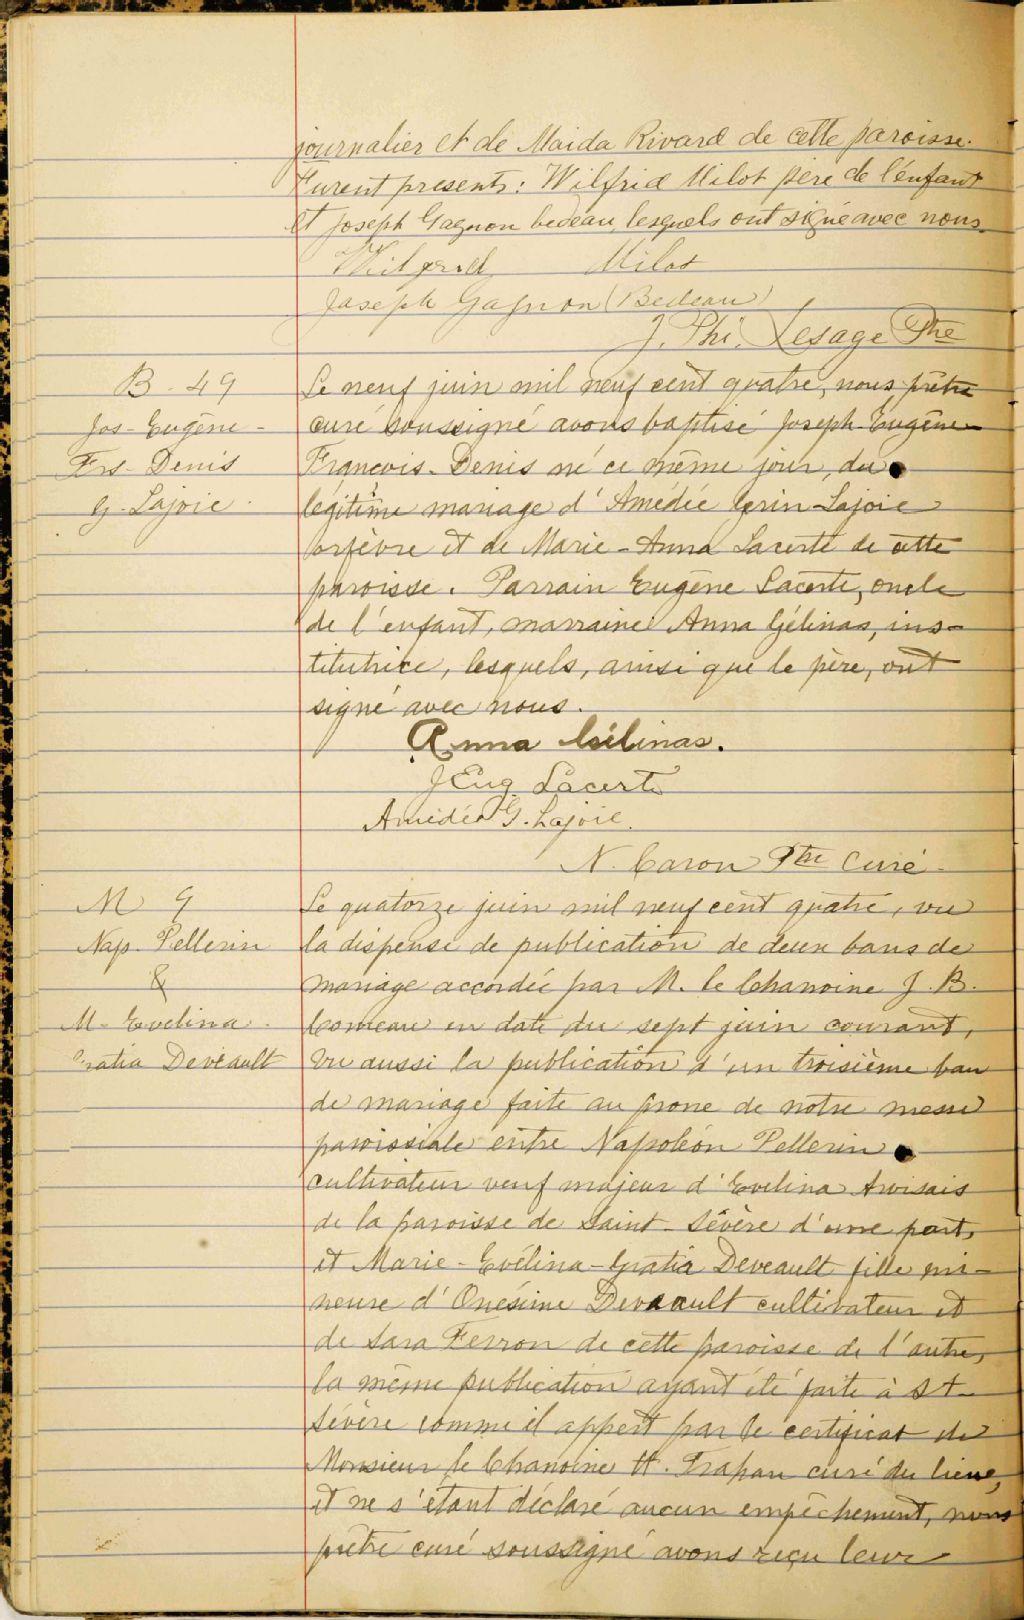 journalier et de Maida Rivard de cette paroisse.
Furent presents: Wilfrid Milot père de l'enfant
et Joseph Gagnon bedeau, lesquels ont signé avec nous.
Wilfrid Milot
Joseph Gagnon (Bedeau)
J. Phi. Lesage Ptre
B - 49
Jos - Eugène -
Frs - Denis
G. Lajoie.
Le neuf juin mil neuf cent quatre, nous prêtre
curé soussigné avons baptisé Joseph-Eugène-
François-Denis né ce même jour, du
légitime mariage d'Amédée Gerin-Lajoie
orfèvre et de Marie-Anna Lacerte de cette
paroisse. Parrain Eugène Lacerte, oncle
de l'enfant, marraine Anna Gélinas, ins-
titutrice, lesquels, ainsi que le père, ont
signé avec nous.
Anna Gélinas.
J Eug Lacerte
Amédée G. Lajoie.
N. Caron Ptre Curé -
M 9
Nap. Pellerin
&
M - Evelina -
Gratia Deveault
Le quatorze juin mil neuf cent quatre, vu
la dispense de publication de deux bans de
mariage accordée par M. le Chanoine J. B.
Comeau en date du sept juin courant,
vu aussi la publication d'un troisième ban
de mariage faite au prone de notre messe
paroissiale entre Napoléon Pellerin
cultivateur veuf majeur d'Evelina
de la paroisse de Saint-Sévère d'une part,
et Marie-Evélina-Gratia Deveault fille mi-
neure d'Onésime Deveault cultivateur et
de Sara Ferron de cette paroisse de l'autre,
la même publication ayant été faite à St-
Sévère comme il appert par le certificat de
Monsieur le Chanoine H. Trahan curé du lieu,
et ne s'étant déclaré aucun empêchement, nous
prêtre curé soussigné avons reçu leur